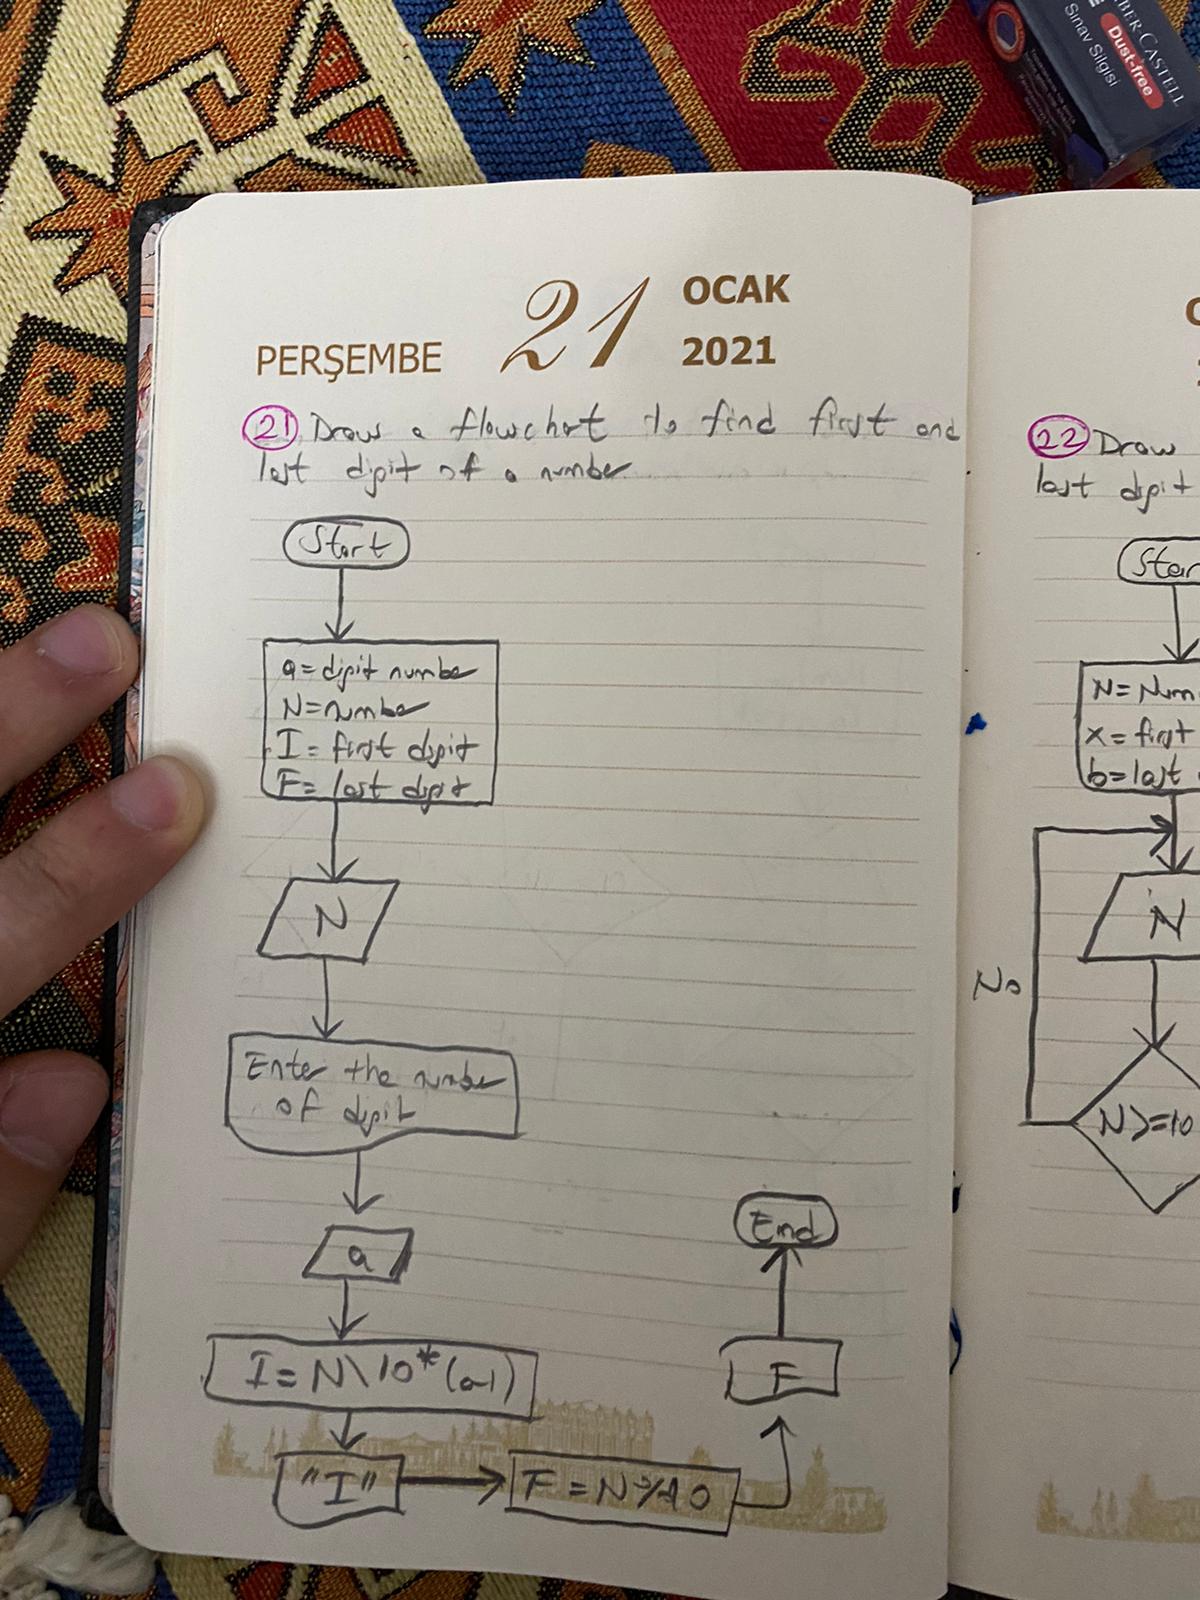 BER CASTELL
Dust-free
Sınav Silgisi
PERŞEMBE 21 OCAK 2021
21 Draw a flowchart to find first and
last digit of a number
Start
a= digit number
N= number
I= first digit
F= last digit
N
Enter the number
of digit
a
I = N\10*(a-1)
"I"
F = N%10
F
End
22 Draw
last digit
Star
N= Num
x= first
b=last
N
No
N>=10